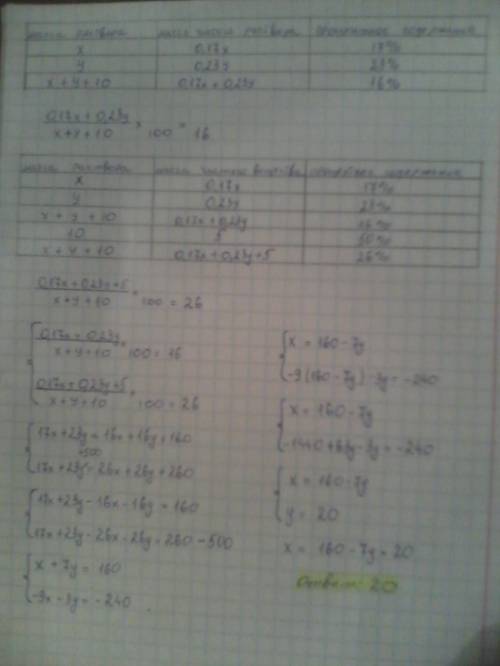 масса раствора масса чистого раствора процентное содержание
x 0,17x 17%
y 0,23y 23%
x+y+10 0,17x+0,23y 16%
0,17x+0,23y
x+y+10 · 100 = 16
масса раствора масса чистого процентное содержание
x 0,17x 17%
y 0,23y 23%
x+y+10 0,17x+0,23y 16%
10 5 50%
x+y+10 0,17x+0,23y+5 26%
0,17x+0,23y+5
x+y+10 · 100 = 26
0,17x+0,23y
x+y+10 · 100 = 16
0,17x+0,23y+5
x+y+10 · 100 = 26
17x+23y=16x+16y+160
+500
17x+23y=26x+26y+260
17x+23y-16x-16y=160
17x+23y-26x-26y=260-500
x+7y=160
-9x-3y=-240
x=160-7y
-9(160-7y)-3y=-240
x=160-7y
-1440+63y-3y=-240
x=160-7y
y=20
x=160-7y=20
Ответ: 20